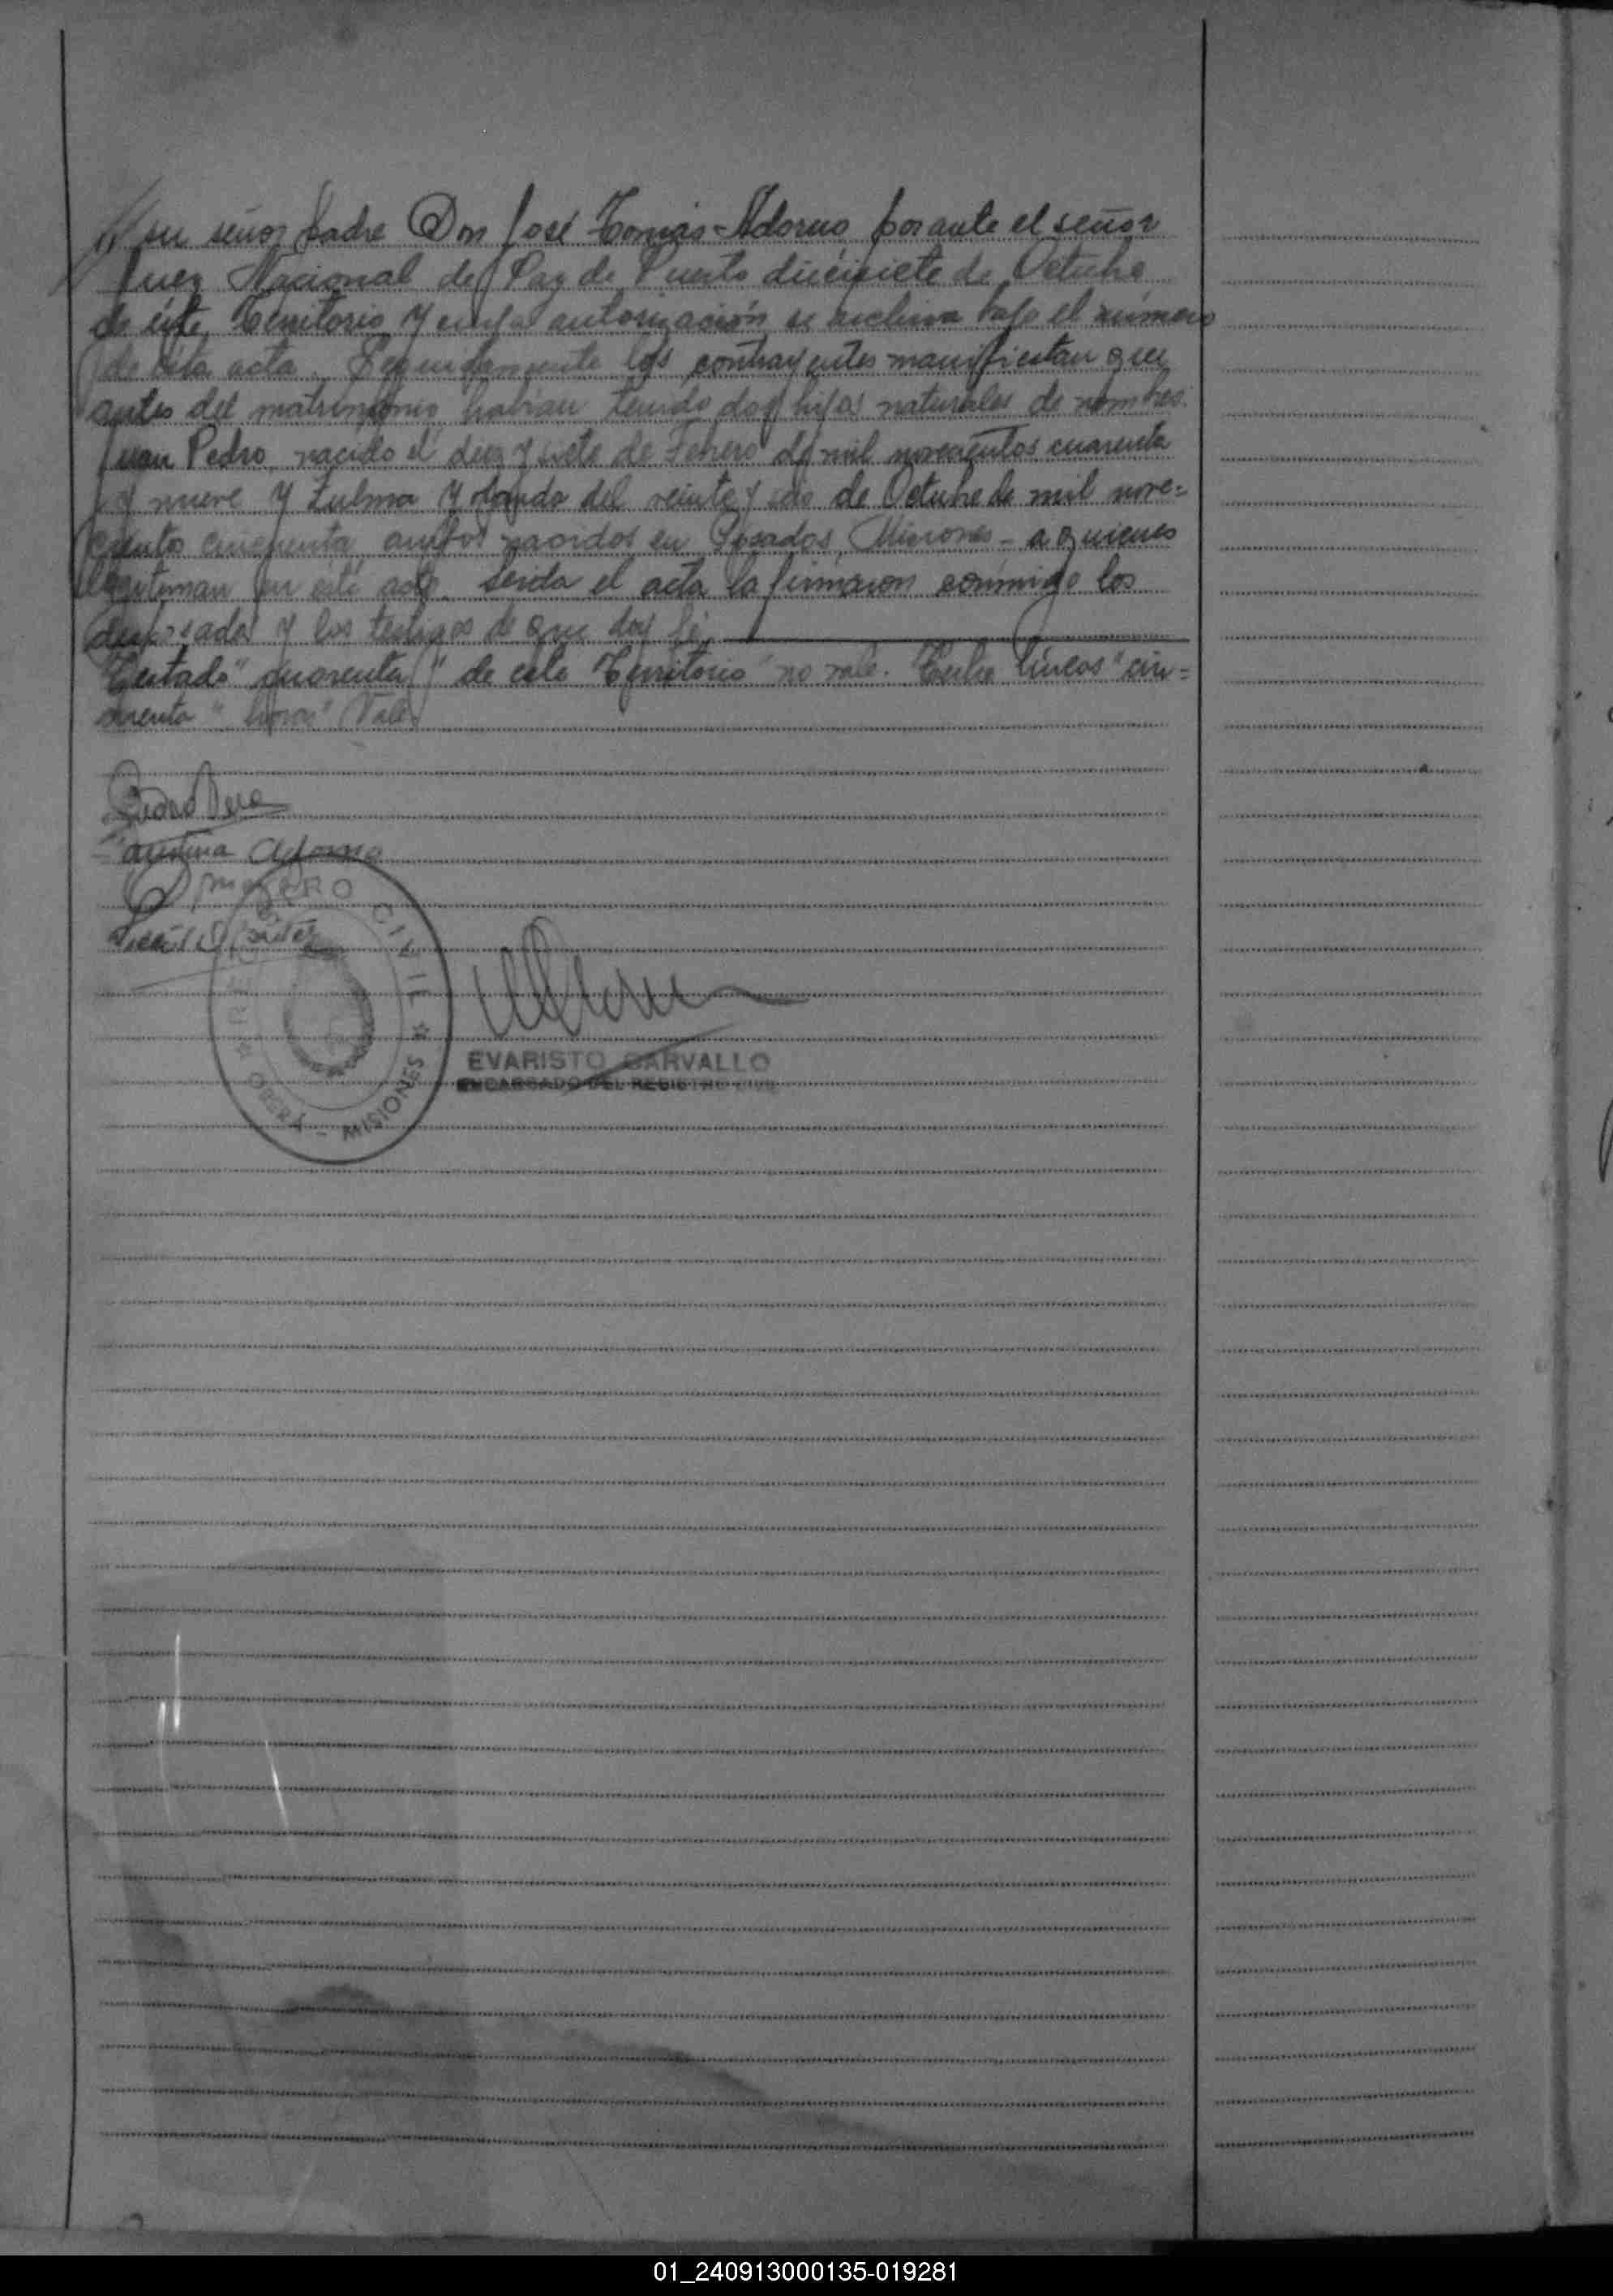 su señor padre Don José Tomás Adorno por ante el señor
Juez Nacional de Paz de Puerto diecisiete de Octubre
de éste Territorio y cuya autorización se archiva bajo el número
de ésta acta. Seguidamente los contrayentes manifiestan que
antes del matrimonio habian tenido dos hijos naturales de nombres:
Juan Pedro, nacido el diez y siete de Febrero de mil novecientos cuarenta
y nueve y Zulma Yolanda del veinte y seis de Octubre de mil nove=
ciento cincuenta ambos nacidos en Posadas, Misiones - a quienes
legitiman en éste acto. Leida el acta la firmaron conmigo los
desposados y los testigos de que doy fé.
Testado "cuarenta" "de este Territorio" no vale. Entre líneas "cin=
cuenta" Vale
Pedro
Adorno
REGISTRO CIVIL
OBERÁ - MISIONES
EVARISTO CARVALLO
ENCARGADO DEL REGISTRO CIVIL
01_240913000135-019281